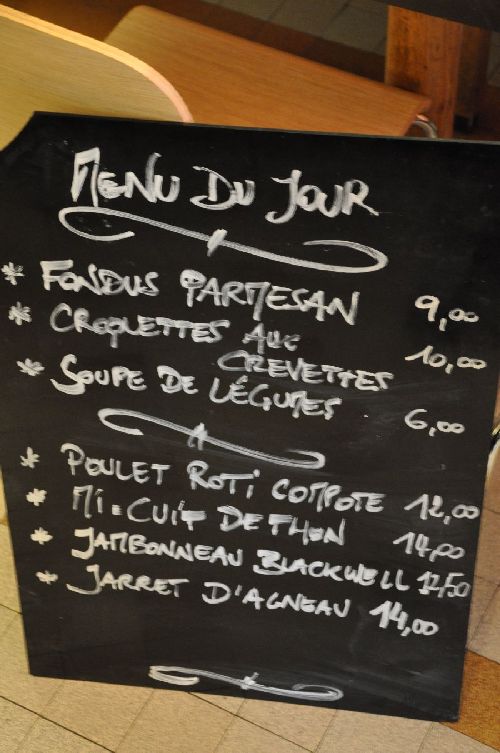 MENU DU JOUR
* FONDUS PARMESAN 9,00
* CROQUETTES AUX
CREVETTES 10,00
* SOUPE DE LÉGUMES 6,00
* POULET ROTI COMPOTE 12,00
* MI-CUIT DE THON 14,00
* JAMBONNEAU BLACKWELL 12,50
* JARRET D'AGNEAU 14,00